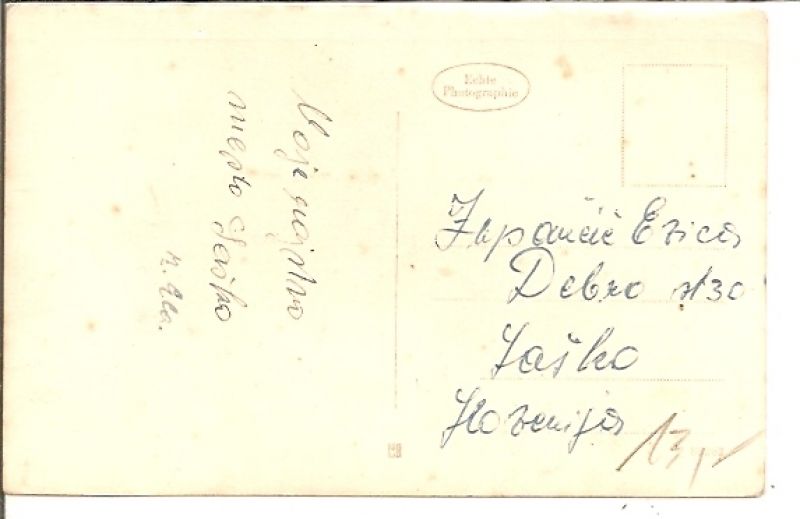 Moje rojstvo
mesto Laško
Echte
Photographie
Župančič Erica
Debro št 30
Laško
Slovenija
13